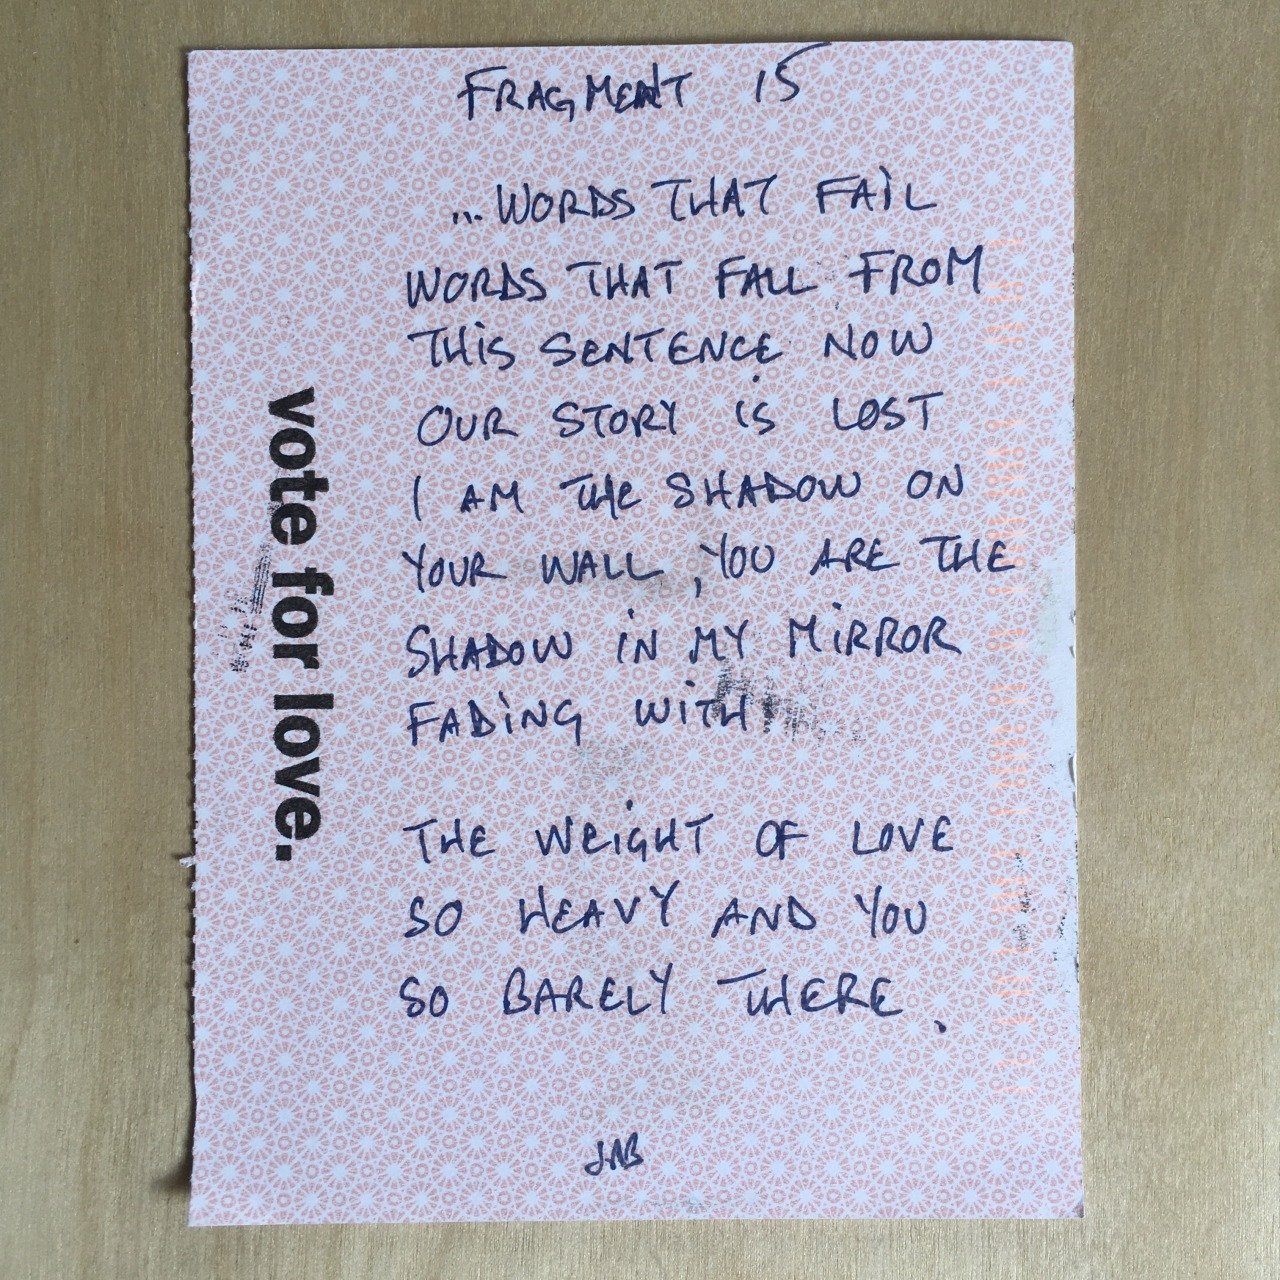 FRAGMENT 15
...WORDS THAT FAIL
WORDS THAT FALL FROM
THIS SENTENCE NOW
OUR STORY IS LOST
I AM THE SHADOW ON
YOUR WALL, YOU ARE THE
SHADOW IN MY MIRROR
FADING WITH
THE WEIGHT OF LOVE
SO HEAVY AND YOU
SO BARELY THERE.
JNB
vote for love.